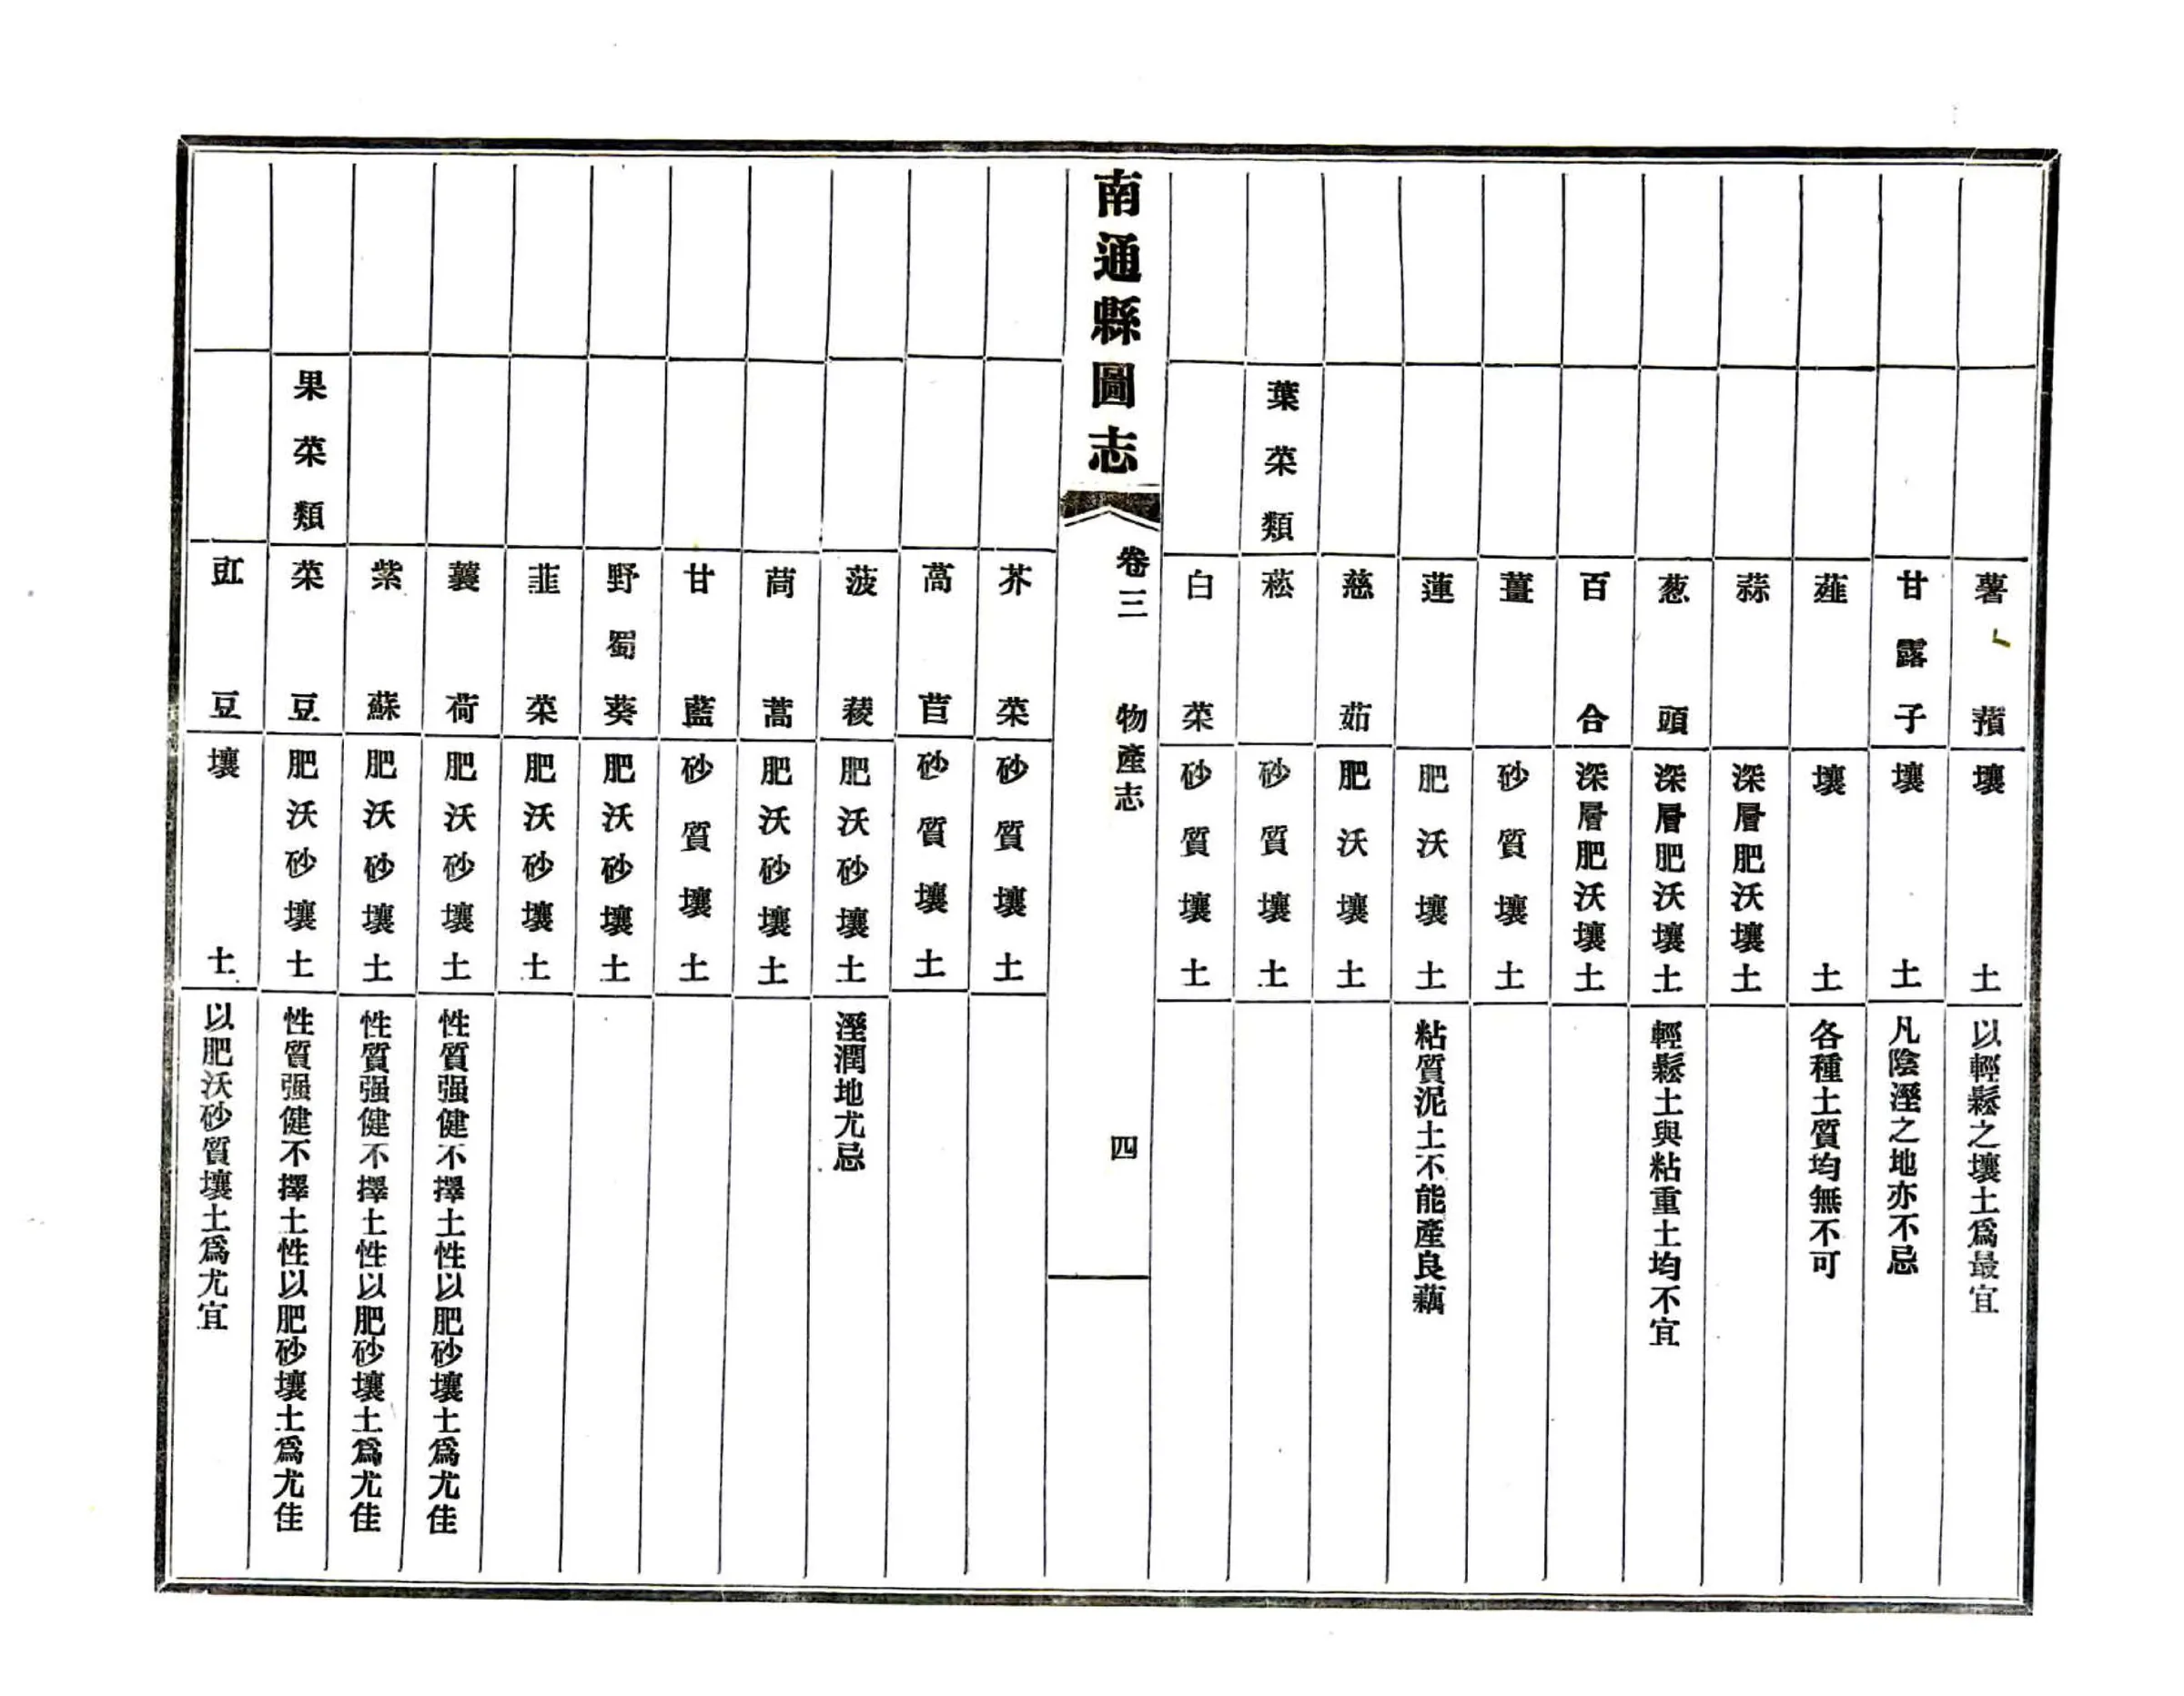 薯蕷 壤土 以輕鬆之壤土爲最宜
甘露子 壤土 凡陰溼之地亦不忌
薤 壤土 各種土質均無不可
蒜 深層肥沃壤土
葱頭 深層肥沃壤土 輕鬆土與粘重土均不宜
百合 深層肥沃壤土
薑 砂質壤土
蓮 肥沃壤土 粘質泥土不能產良藕
慈茹 肥沃壤土
葉菜類 菘 砂質壤土
白菜 砂質壤土
南通縣圖志 卷三 物產志 四
芥菜 砂質壤土
萵苣 砂質壤土
菠薐 肥沃砂壤土 溼潤地尤忌
茼蒿 肥沃砂壤土
甘藍 砂質壤土
野蜀葵 肥沃砂壤土
韭菜 肥沃砂壤土
蘘荷 肥沃砂壤土 性質强健不擇土性以肥砂壤土爲尤佳
紫蘇 肥沃砂壤土 性質强健不擇土性以肥砂壤土爲尤佳
果菜類 菜豆 肥沃砂壤土 性質强健不擇土性以肥砂壤土爲尤佳
豇豆 壤土 以肥沃砂質壤土爲尤宜